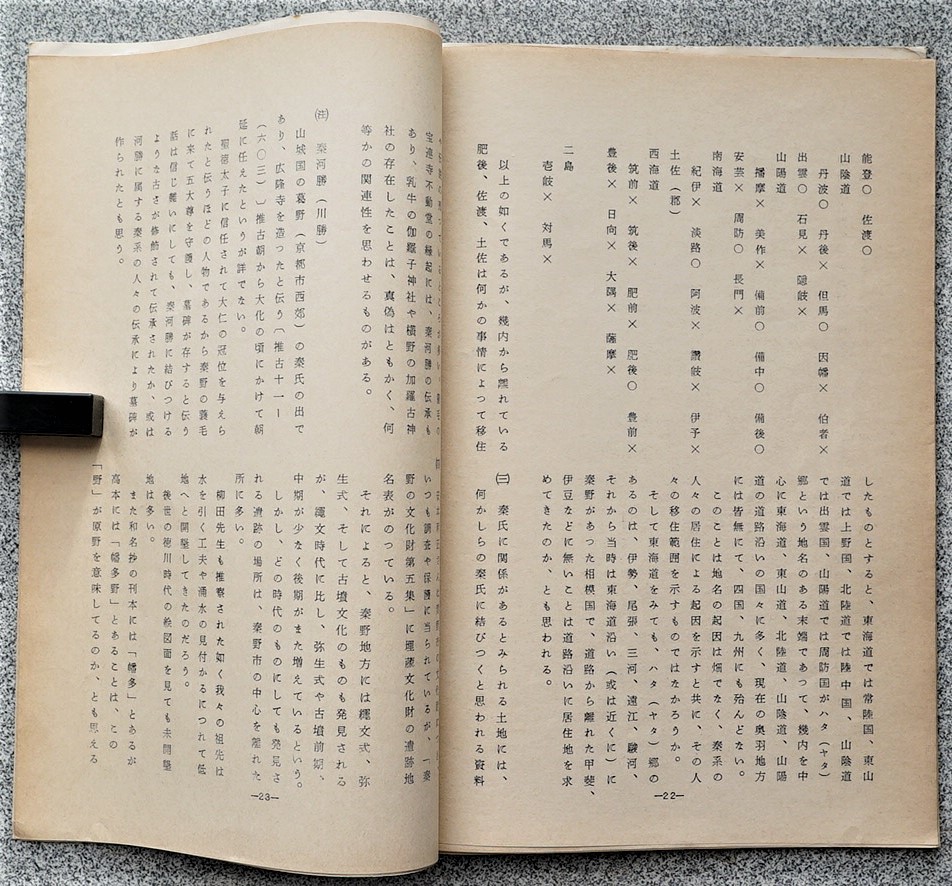 能登○　佐渡○
山陰道
丹波○　丹後×　但馬○　因幡×　伯者×
出雲○　石見×　隠岐×
山陽道
播磨×　美作×　備前○　備中○　備後○
安芸×　周防○　長門×
南海道
紀伊×　淡路○　阿波×　讃岐×　伊予×
土佐（郡）
西海道
筑前×　筑後×　肥前×　肥後○　豊前×
豊後×　日向×　大隅×　薩摩×
二島
壱岐×　対馬×
以上の如くであるが、幾内から離れている
肥後、佐渡、土佐は何かの事情によって移住
したものとすると、東海道では常陸国、東山
道では上野国、北陸道では陸中国、山陰道
では出雲国、山陽道では周防国がハタ（ヤタ）
郷という地名のある末端であって、幾内を中
心に東海道、東山道、北陸道、山陰道、山陽
道の道路沿いの国々に多く、現在の奥羽地方
には皆無にて、四国、九州にも殆んどない。
このことは地名の起因は畑でなく、秦系の
人々の居住による起因を示すと共に、その人
々の移住範囲を示すものではなかろうか。
そして東海道をみても、ハタ（ヤタ）郷の
あるのは、伊勢、尾張、三河、遠江、駿河、
それから当時は東海道沿い（或は近くに）に
秦野があった相模国で、道路から離れた甲斐、
伊豆などに無いことは道路沿いに居住地を求
めてきたのか、とも思われる。
㈢　秦氏に関係があるとみられる土地には、
何かしらの秦氏に結びつくと思われる資料
—22—
宝蓮寺不動堂の縁起には、秦河勝の伝承も
あり、乳牛の伽羅子神社や横野の加羅古神
社の存在したことは、真偽はともかく、何
等かの関連性を思わせるものがある。
㊟　秦河勝（川勝）
山城国の葛野（京都市西郊）の秦氏の出で
あり、広隆寺を造ったと伝う〔推古十一―
（六〇三）〕推古朝から大化の頃にかけて朝
廷に任えたというが詳でない。
聖徳太子に信任されて大仁の冠位を与えら
れたと伝うほどの人物であるから秦野の蓑毛
に来て五大尊を守護し、墓碑が存すると伝う
話は信じ難いにしても、秦河勝に結びつける
ような古さが修飾されて伝承されたか、或は
河勝に属する秦系の人々の伝承により墓碑が
作られたとも思う。
いつも調査や保護に当られているが、「秦
野の文化財第五集」に埋蔵文化財の遺跡地
名表がのっている。
それによると、秦野地方には縄文式、弥
生式、そして古墳文化のものも発見される
が、縄文時代に比し、弥生式や古墳前期、
中期が少なく後期がまた増えているという。
しかし、どの時代のものにしても発見さ
れる遺跡の場所は、秦野市の中心を離れた
所に多い。
柳田先生も推察された如く我々の祖先は
水を引く工夫や湧水の見付かるにつれて低
地へと開墾してきたのだろう。
後世の徳川時代の絵図面を見ても未開墾
地は多い。
また和名抄の刊本には「幡多」とあるが
高本には「幡多野」とあることは、この
「野」が原野を意味してるのか、とも思える
—23—